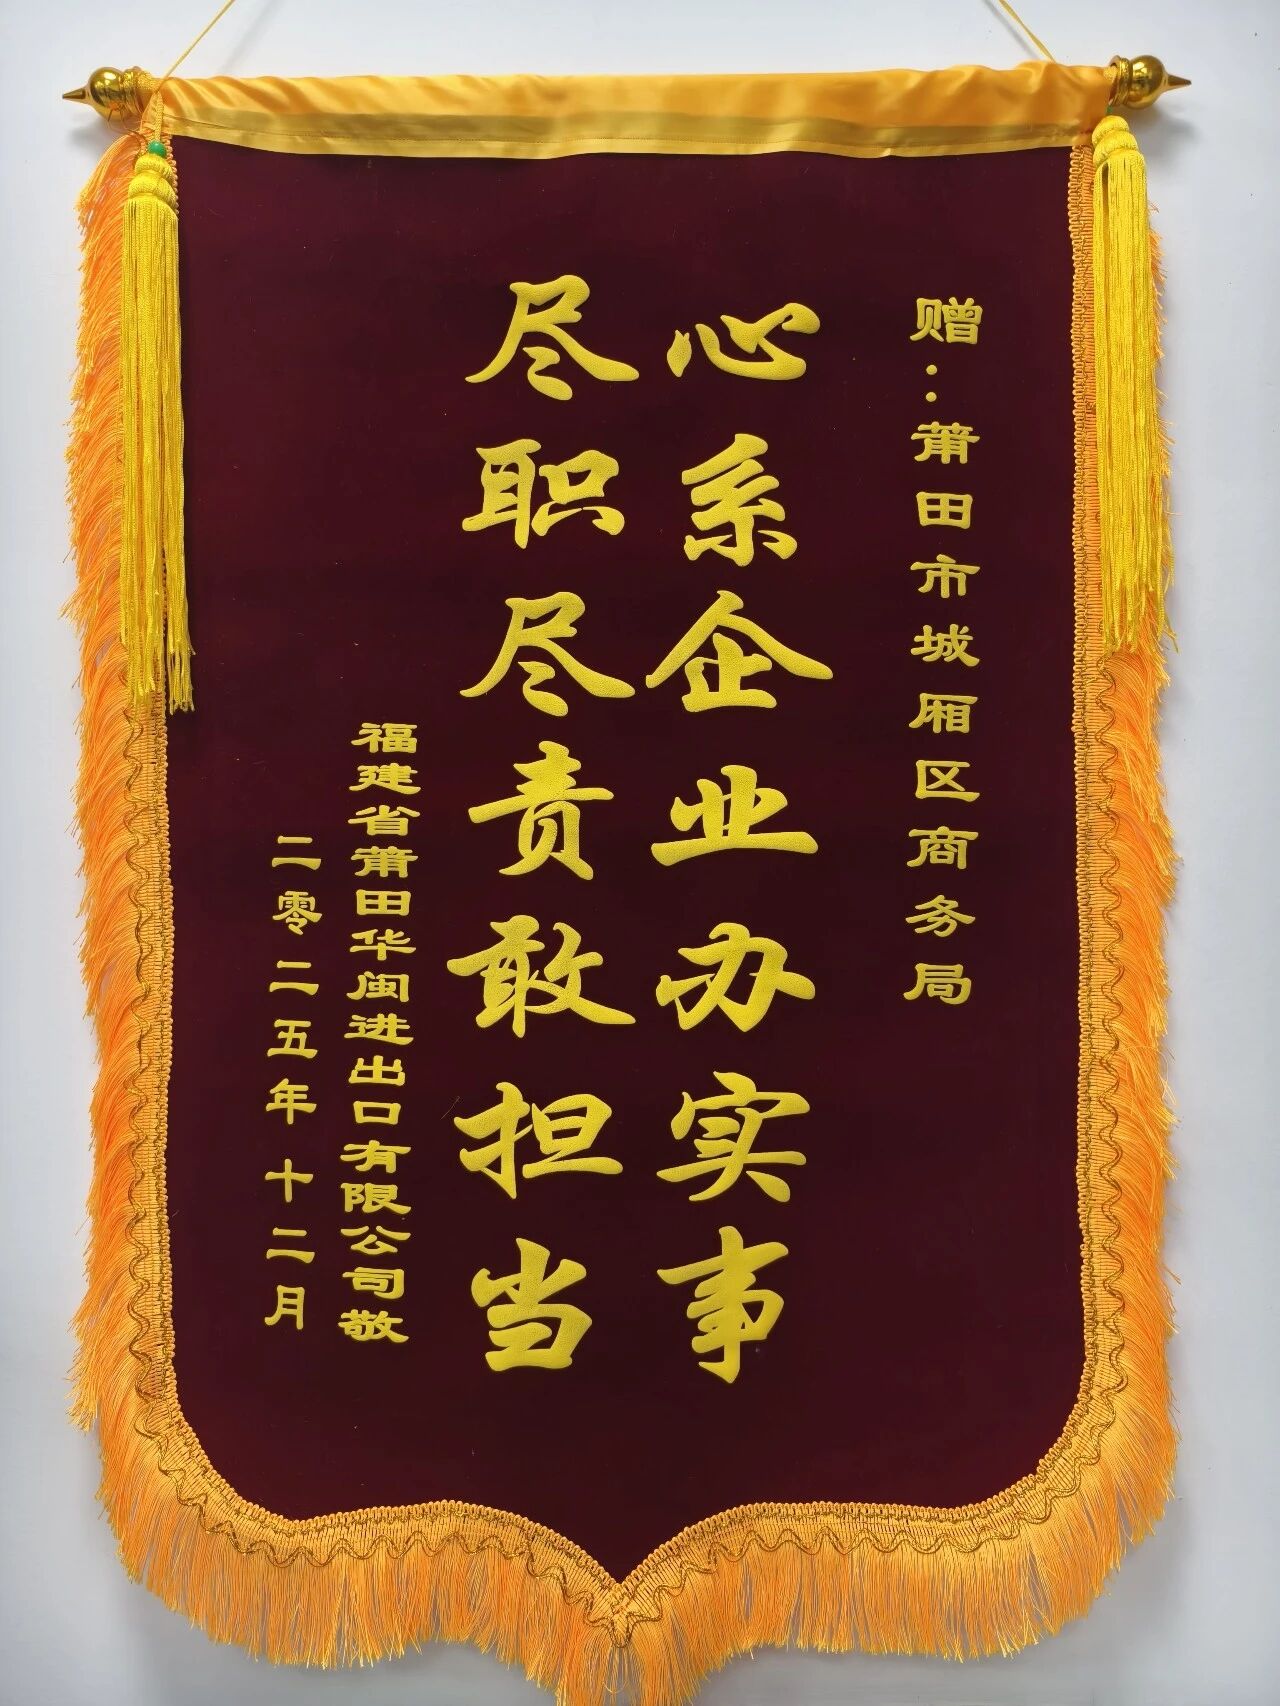 赠：莆田市城厢区商务局
心系企业办实事
尽职尽责敢担当
福建省莆田华闽进出口有限公司敬
二零二五年十二月